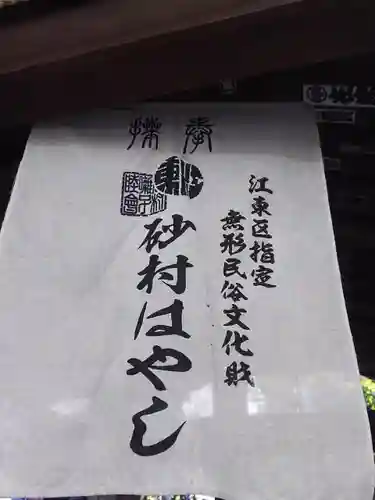 江東区指定
無形民俗文化財
砂村はやし
囃子
睦會